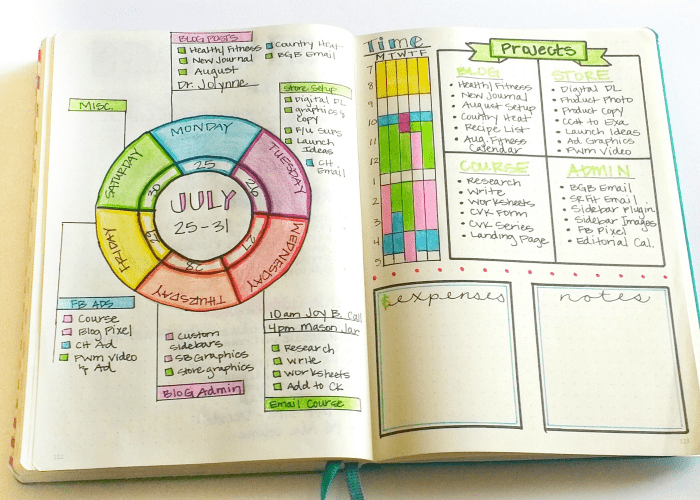 BLOG POSTS
Healthy Fitness
New Journal
August
Dr. Jolynne
Country Heat
BGB Email
MISC.
Store Setup
Digital DL
graphics &
copy
F/u Surs
Launch
Ideas
CH
Email
MONDAY
25
TUESDAY
26
WEDNESDAY
27
THURSDAY
28
FRIDAY
29
SATURDAY
30
JULY
25-31
FB ADS
Course
Blog Pixel
CH Ad
PWM Video
& Ad
Custom
Sidebars
SB Graphics
Store graphics
Blog Admin
10am Joy B. Call
4pm Mason Jar
Research
Write
Worksheets
Add to CK
Email Course
Time
M T W T F
7
8
9
10
11
12
1
2
3
4
5
Projects
BLOG
• Healthy Fitness
• New Journal
• August Setup
• Country Heat
• Recipe List
• Aug. Fitness
Calendar
STORE
• Digital DL
• Product Photo
• Product Copy
• CCH to Exa
• Launch Ideas
• Ad Graphics
• PWM Video
COURSE
• Research
• Write
• Worksheets
• CVK Form
• CVK Series
• Landing Page
ADMIN
• BGB Email
• SR Fit Email
• Sidebar Plugin
• Sidebar Images
• FB Pixel
• Editorial Cal.
$ expenses
notes